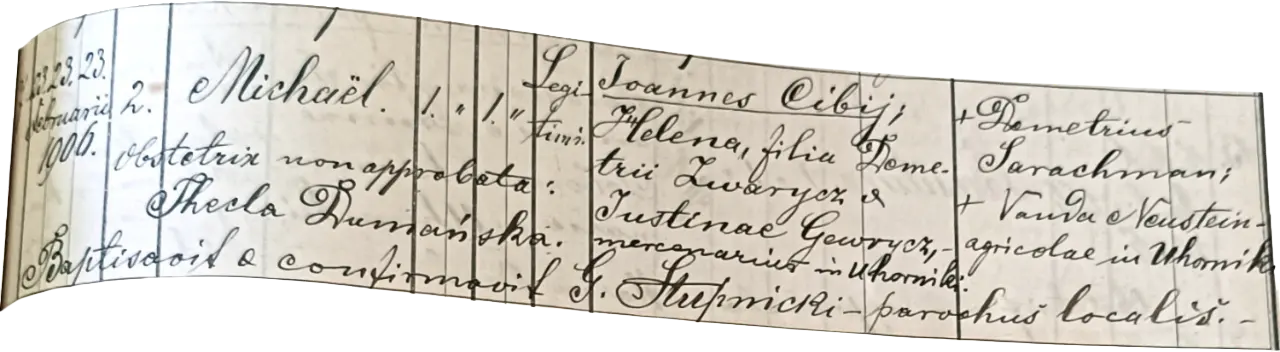 23. 23. 23. 2. Michaël. 1. " 1. " Legi- Ioannes Cibij; + Demetrius
Februarii timi. Helena, filia Deme- Sarachman;
1906. obstetrix non approbata: trii Zwarycz & + Vanda Neustein-
Thecla Dumańska. Iustinae Gewrycz,- agricolae in Uhornik
mercenarius in Uhorniki.
Baptisavit & confirmavit G. Stupnicki - parochus localis. -